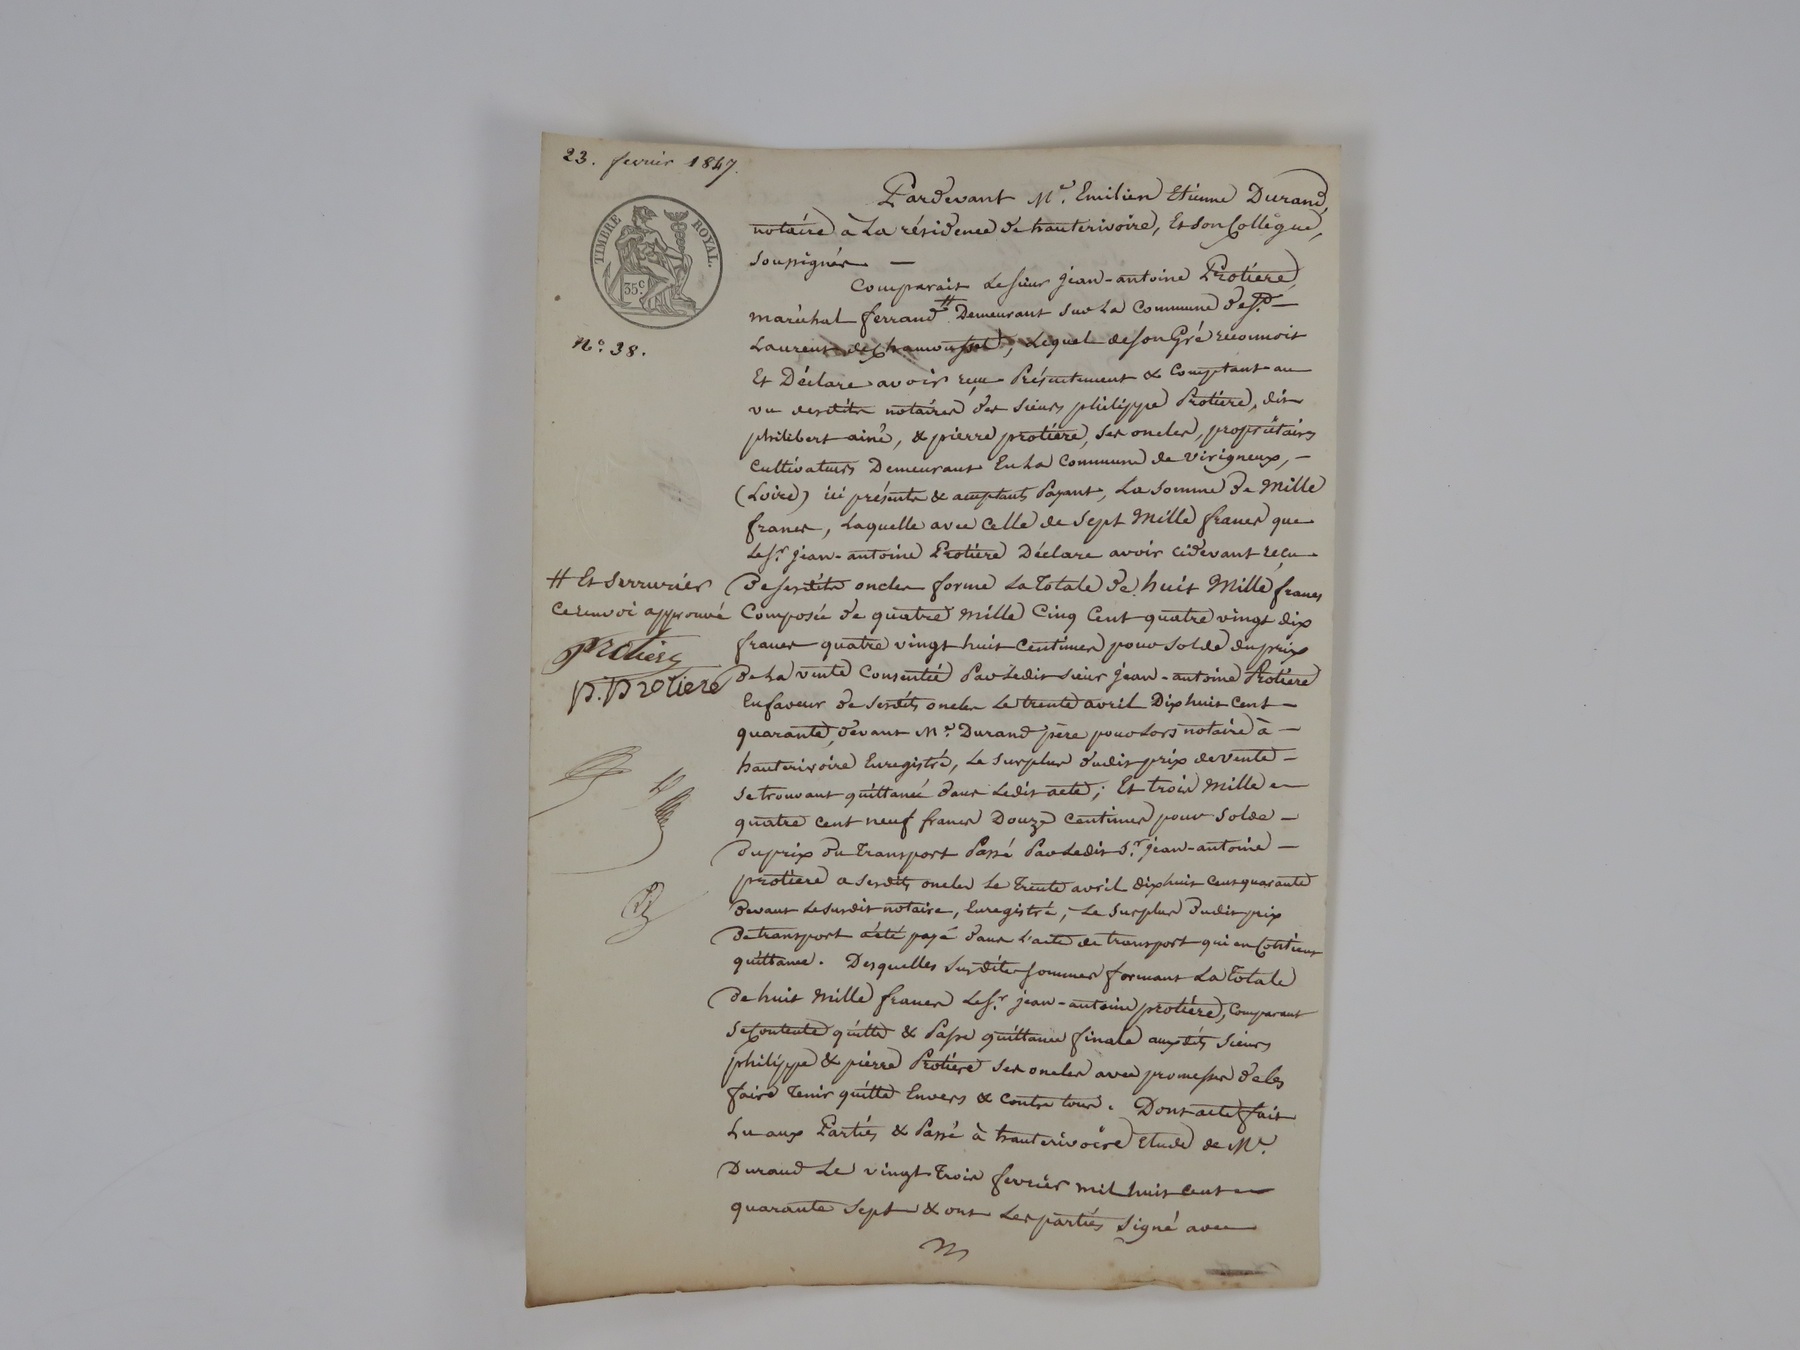 23. fevrier 1847.
TIMBRE ROYAL.
35c
No. 38.
Pardevant Me. Emilien Etienne Durand,
notaire à La résidence de hauterivoire, Et son Collègue,
soussignés —
Comparait Le sieur jean-antoine Protière,
maréchal ferrand # Demeurant sur La Commune de St. —
Laurent de Chamousset, Lequel de son Gré reconnoit
Et Déclare avoir reçu Présentement & Comptant au
vu desdits notaires, des sieurs philippe Protière, dit
philibert ainé, & pierre protière, ses oncles, propriétaires
Cultivateurs Demeurant En La Commune de Virigneux, —
(Loire) ici présents & acceptants Payant, La Somme De Mille
francs, Laquelle avec Celle de Sept Mille francs que
Le Sr. jean-antoine Protière Déclare avoir cidevant reçu
De sesdits oncles forme La Totale de huit Mille francs
Composée de quatre Mille Cinq Cent quatre vingt dix
francs quatre vingt huit Centimes pour Solde du prix
De La vente Consentie Par Ledit sieur jean-antoine Protière
En faveur de sesdits oncles Le trente avril Dix huit Cent —
quarante, devant Me. Durand père pour Lors notaire à —
hauterivoire Enregistré, Le Surplus dudit prix de vente —
se trouvant quittancé dans Ledit acte; Et trois Mille
quatre cent neuf francs Douze Centimes pour Solde —
du prix du Transport Passé Par Ledit Sr. jean-antoine —
protière a sesdits oncles Le Trente avril dix huit Cent quarante
Devant Le susdit notaire, Enregistré, Le Surplus dudit prix
De transport a été payé dans L'acte de transport qui en Contient
quittance. Desquelles Susdites sommes formant La Totale
De huit Mille francs Le Sr. jean-antoine protière, Comparant
se Contente quitte & Passe quittance finale auxdits Sieurs
philippe & pierre Protière ses oncles avec promesse de les
faire Tenir quitte Envers & Contre tous. Dont acte fait
Lu aux Parties & Passé à hauterivoire Etude de Me.
Durand Le vingt Trois fevrier mil huit Cent
quarante Sept & ont Les parties Signé avec
# Et Serrurier
Ce renvoi approuvé
Protiere
P. Protiere